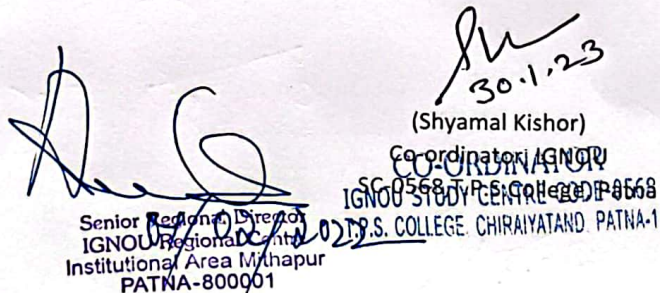 30.1.23
(Shyamal Kishor)
Co-ordinator, IGNOU
SC-0568, T.P.S. College, Patna
CO-ORDINATOR
IGNOU STUDY CENTRE CODE-0568
T.P.S. COLLEGE, CHIRAIYATAND, PATNA-1
Senior Regional Director
IGNOU Regional Centre
Institutional Area Mithapur
PATNA-800001